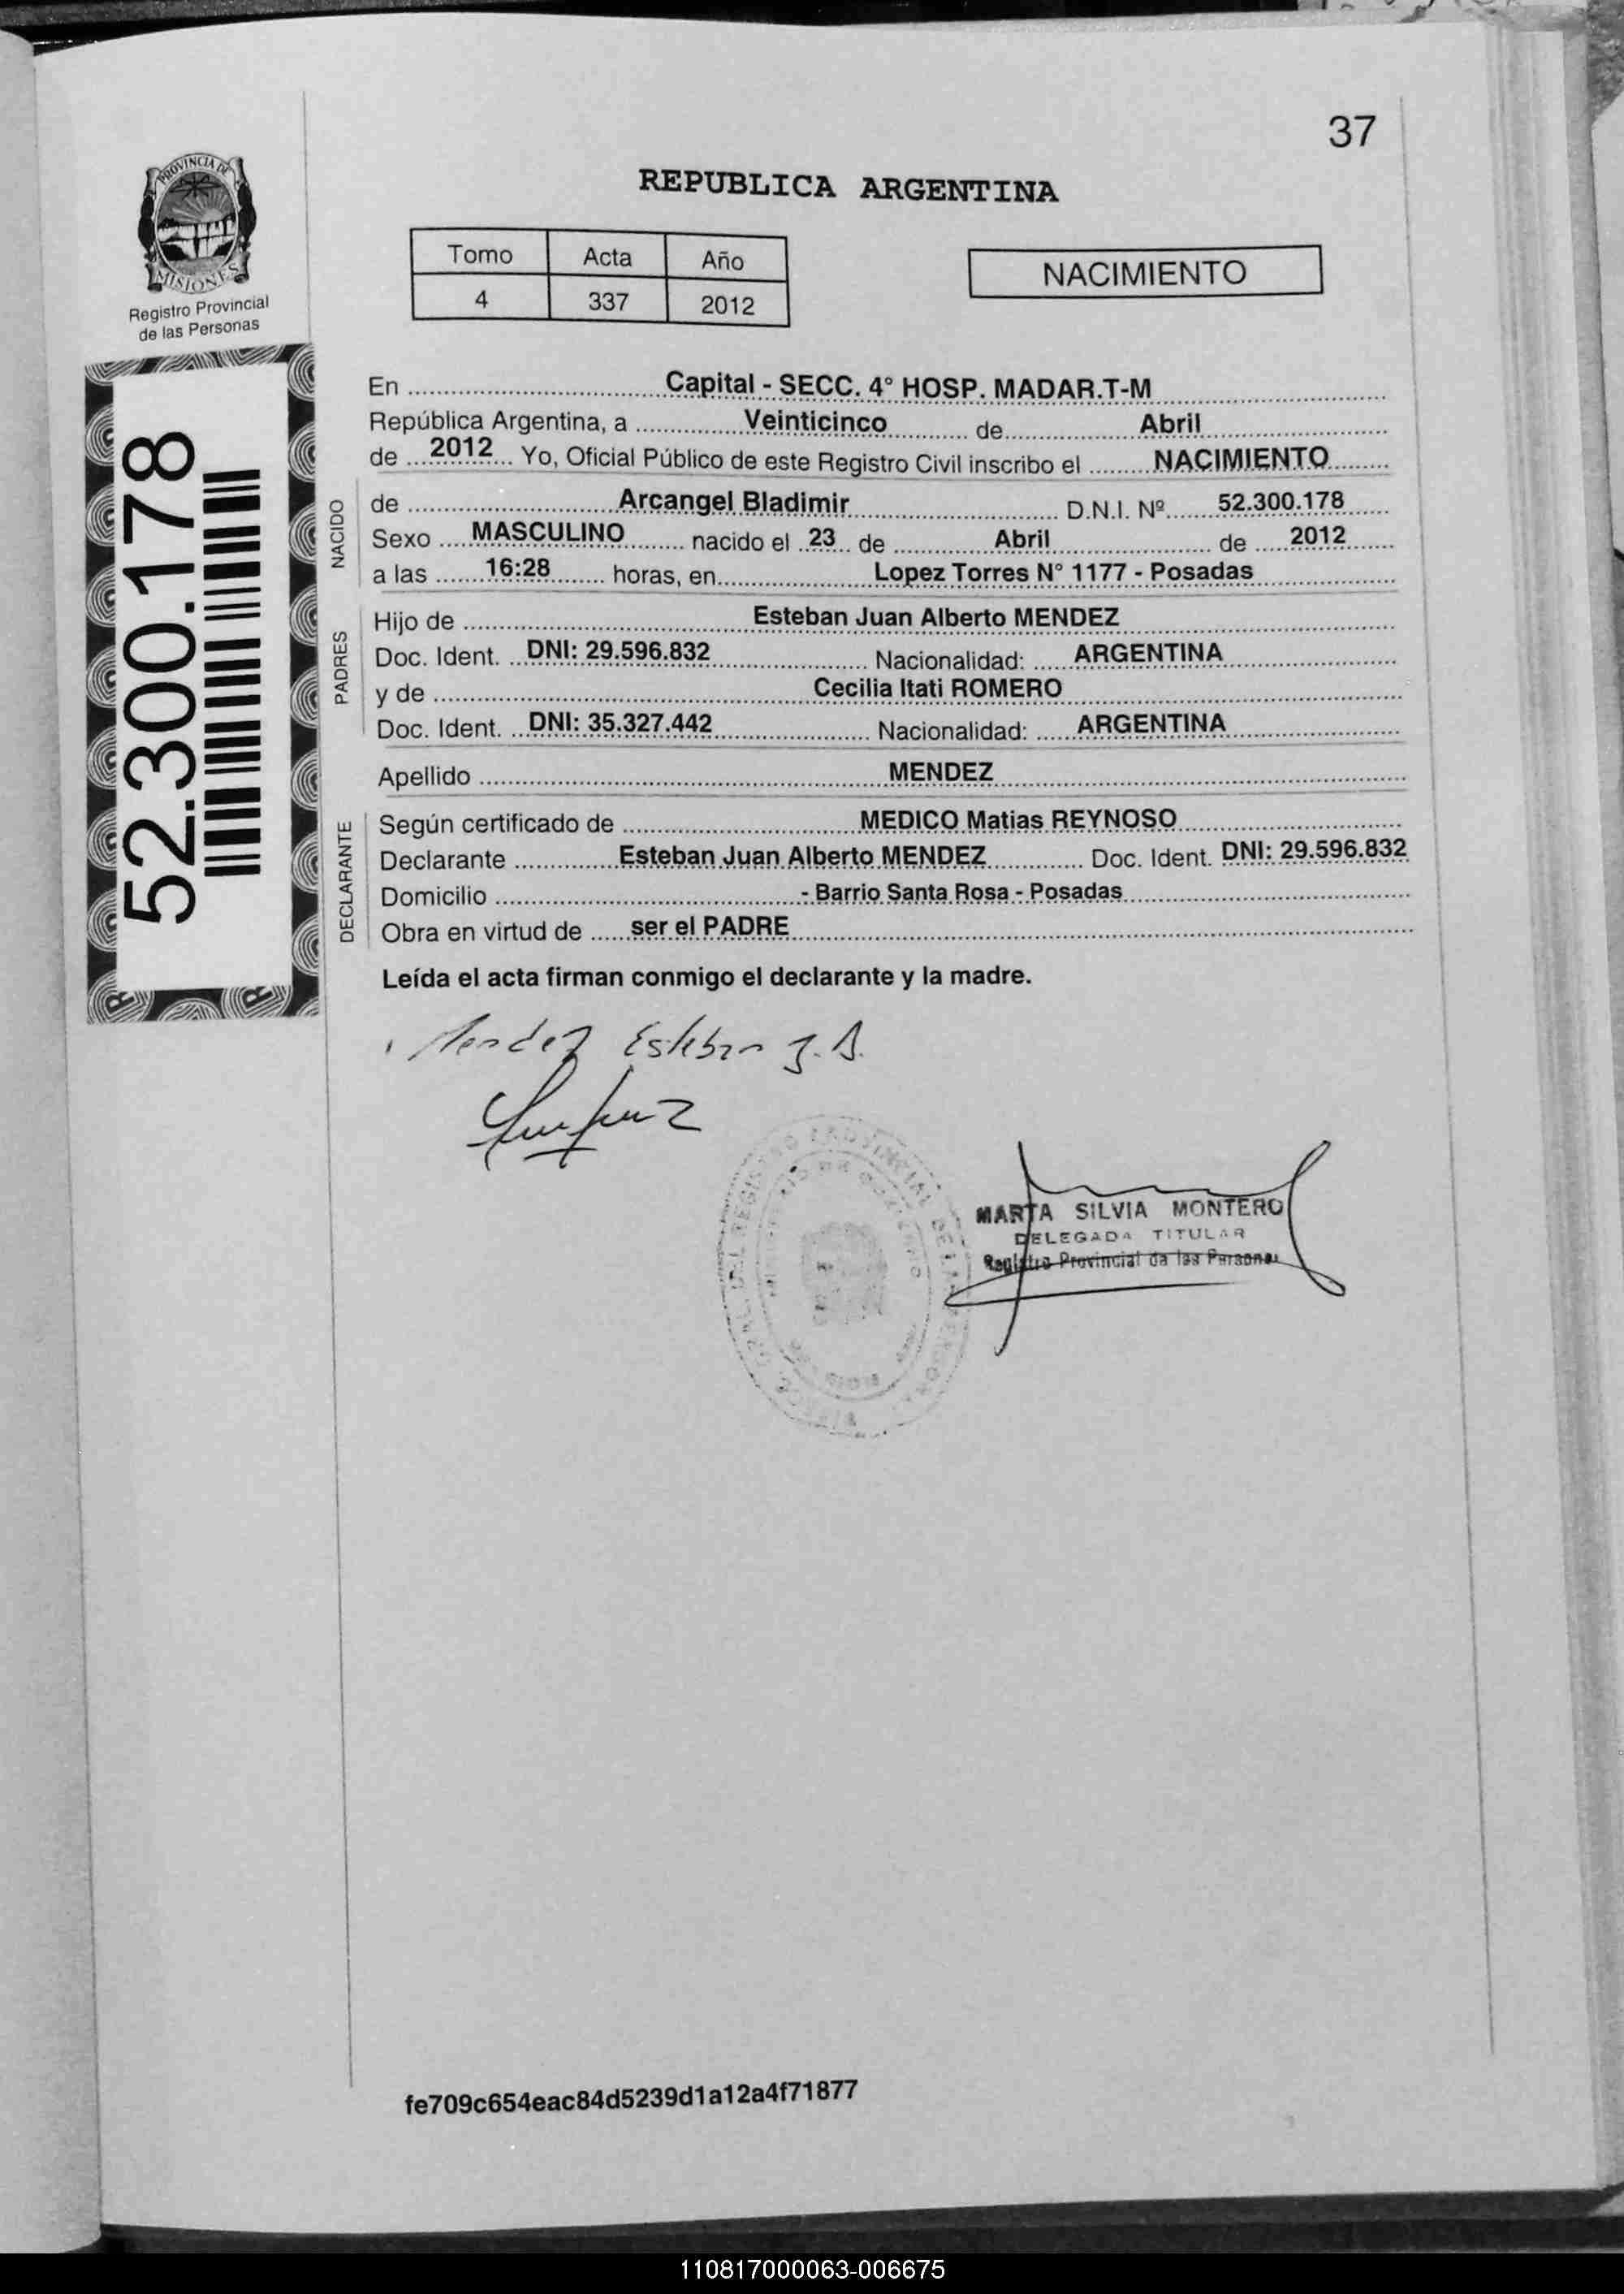 37
PROVINCIA DE
MISIONES
Registro Provincial
de las Personas
REPUBLICA ARGENTINA
Tomo Acta Año
4 337 2012
NACIMIENTO
52.300.178
En Capital - SECC. 4° HOSP. MADAR.T-M
República Argentina, a Veinticinco de Abril
de 2012 Yo, Oficial Público de este Registro Civil inscribo el NACIMIENTO
NACIDO
de Arcangel Bladimir D.N.I. Nº 52.300.178
Sexo MASCULINO nacido el 23 de Abril de 2012
a las 16:28 horas, en Lopez Torres N° 1177 - Posadas
PADRES
Hijo de Esteban Juan Alberto MENDEZ
Doc. Ident. DNI: 29.596.832 Nacionalidad: ARGENTINA
y de Cecilia Itati ROMERO
Doc. Ident. DNI: 35.327.442 Nacionalidad: ARGENTINA
Apellido MENDEZ
DECLARANTE
Según certificado de MEDICO Matias REYNOSO
Declarante Esteban Juan Alberto MENDEZ Doc. Ident. DNI: 29.596.832
Domicilio - Barrio Santa Rosa - Posadas
Obra en virtud de ser el PADRE
Leída el acta firman conmigo el declarante y la madre.
Mendez Esteban J. A.
MARTA SILVIA MONTERO
DELEGADA TITULAR
Registro Provincial de las Personas
fe709c654eac84d5239d1a12a4f71877
110817000063-006675